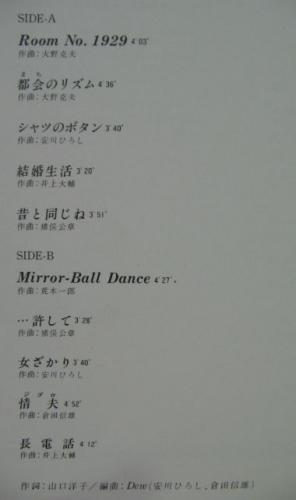 SIDE-A
Room No. 1929 4'03"
作曲:大野克夫
まち
都会のリズム 4'36"
作曲:大野克夫
シャツのボタン 3'40"
作曲:安川ひろし
結婚生活 3'20"
作曲:井上大輔
昔と同じね 3'51"
作曲:猪俣公章
SIDE-B
Mirror-Ball Dance 4'27"
作曲:荒木一郎
…許して 3'28"
作曲:猪俣公章
女ざかり 3'40"
作曲:安川ひろし
ジゴロ
情夫 4'52"
作曲:倉田信雄
長電話 4'12"
作曲:井上大輔
作詞:山口洋子/編曲:Dew(安川ひろし、倉田信雄)